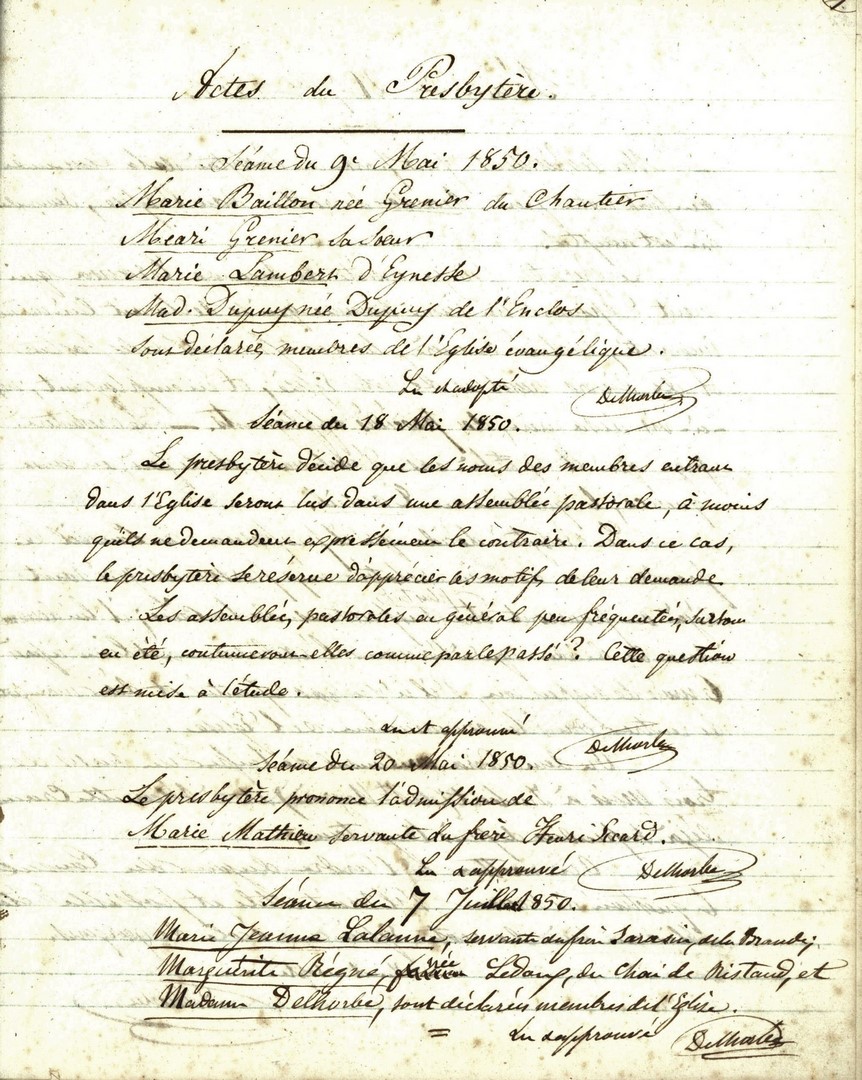 Actes du Presbytère.
Séance du 9e Mai 1850.
Marie Baillon née Grenier du Chantier
Méari Grenier sa sœur
Marie Lambert d'Eynesse
Mad. Dupuy née Dupuy de l'Enclos
sont déclarées membres de l'Eglise évangélique.
Lu et adopté Delhorbe
Séance du 18 Mai 1850.
Le presbytère décide que les noms des membres entrant
dans l'Eglise seront lus dans une assemblée pastorale, à moins
qu'ils ne demandent expressément le contraire. Dans ce cas,
le presbytère se réserve d'apprécier les motifs de leur demande
Les assemblées pastorales en général peu fréquentées, surtout
en été, continueront-elles comme par le passé? Cette question
est mise à l'étude.
Lu et approuvé Delhorbe
Séance du 20 Mai 1850.
Le presbytère prononce l'admission de
Marie Mathieu servante du frère Henri Sicard.
Lu & approuvé Delhorbe
Séance du 7 Juillet 1850.
Marie Jeanne Lalanne, servante du frère Sarasin, de la
Marguerite Régné, née du Chai de Ristaud, et
Madame Delhorbe, sont déclarées membres de l'Eglise.
Lu & approuvé Delhorbe